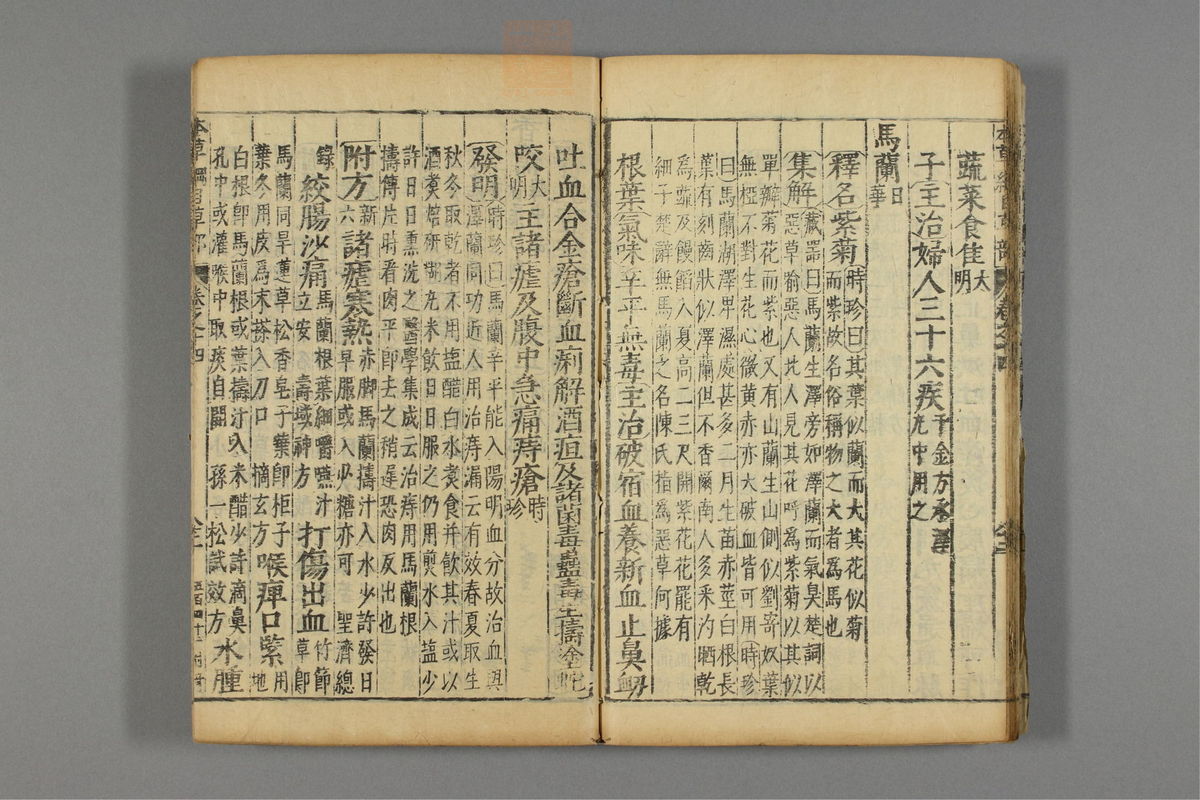 蔬菜食佳大明
子主治婦人三十六疾千金方承澤丸中用之
馬蘭日華
釋名紫菊時珍曰其葉似蘭而大其花似菊而紫故名俗稱物之大者為馬也
集解藏器曰馬蘭生澤旁如澤蘭而氣臭楚詞以惡草喻惡人北人見其花呼為紫菊以其似
單瓣菊花而紫也又有山蘭生山側似劉寄奴葉無椏不對生花心微黃赤亦大破血皆可用時珍
曰馬蘭湖澤卑濕處甚多二月生苗赤莖白根長葉有刻齒狀似澤蘭但不香爾南人多采汋晒乾
為蔬及饅餡入夏高二三尺開紫花花罷有細子楚辭無馬蘭之名陳氏指為惡草何據
根葉氣味辛平無毒主治破宿血養新血止鼻衄
吐血合金瘡斷血痢解酒疸及諸菌毒蠱毒生擣塗蛇
咬大明主諸瘧及腹中急痛痔瘡時珍
發明時珍曰馬蘭辛平能入陽明血分故治血與澤蘭同功近人用治痔漏云有效春夏取生
秋冬取乾者不用塩醋白水煑食并飲其汁或以酒煑焙研糊丸米飲日日服之仍用煎水入塩少
許日日熏洗之醫學集成云治痔用馬蘭根擣傅片時看肉平即去之稍遲恐肉反出也
附方新六諸瘧寒熱赤脚馬蘭擣汁入水少許發日早服或入少糖亦可 聖濟總
錄 絞腸沙痛馬蘭根葉細嚼嚥汁立安 壽域神方 打傷出血竹節草即
馬蘭同旱蓮草松香皂子葉即柜子葉冬用皮為末搽入刀口 摘玄方 喉痺口緊用地
白根即馬蘭根或葉擣汁入米醋少許滴鼻孔中或灌喉中取痰自開 孫一松試效方 水腫
本草綱目草部 卷之十四